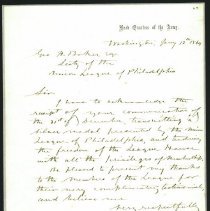 Head Quarters of the Army,
Washington, Jany 13th 186
Geo. H. Boker Esq.
Secty of the
Union League of Philadelphia
Sir,
I have to acknowledge the
receipt of your communication of
the 30th of December transmitting a
silver medal presented by the Union
League of Philadelphia, and tending
the freedom of the League House
with all the privileges of membership.
Be pleased to present my thanks
to the members of the League for
their very complimentary testimonial,
and believe me
Very respectfully